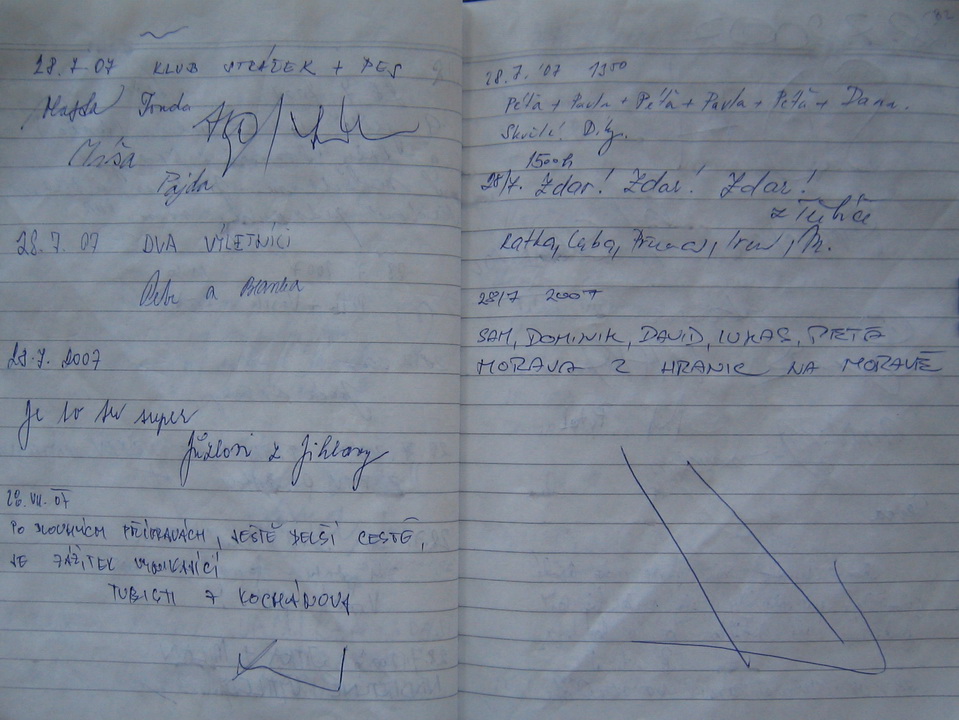 28.7.07 KLUB STRÁŽEK + PES
Majda Tonda
Míša
Pajda
28.7.07 DVA VÝLETNÍCI
Petr a Blanka
28.7.2007
Je to tu super
z Jihlavy
28.VII.07
PO DLOUHÝCH PŘÍPRAVÁCH, JEŠTĚ DELŠÍ CESTĚ,
JE ZÁŽITEK VYNIKAJÍCÍ
TURISTI Z KOCHÁNOVA
32
28.7.'07 1350
Péťa + Pavla + Péťa + Pavla + Péťa + Dana.
1500h
28/7. Zdar! Zdar! Zdar!
z
Katka,
28/7 2007
SAM, DOMINIK, DAVID, LUKAS, PETA
MORAVA Z HRANIC NA MORAVĚ